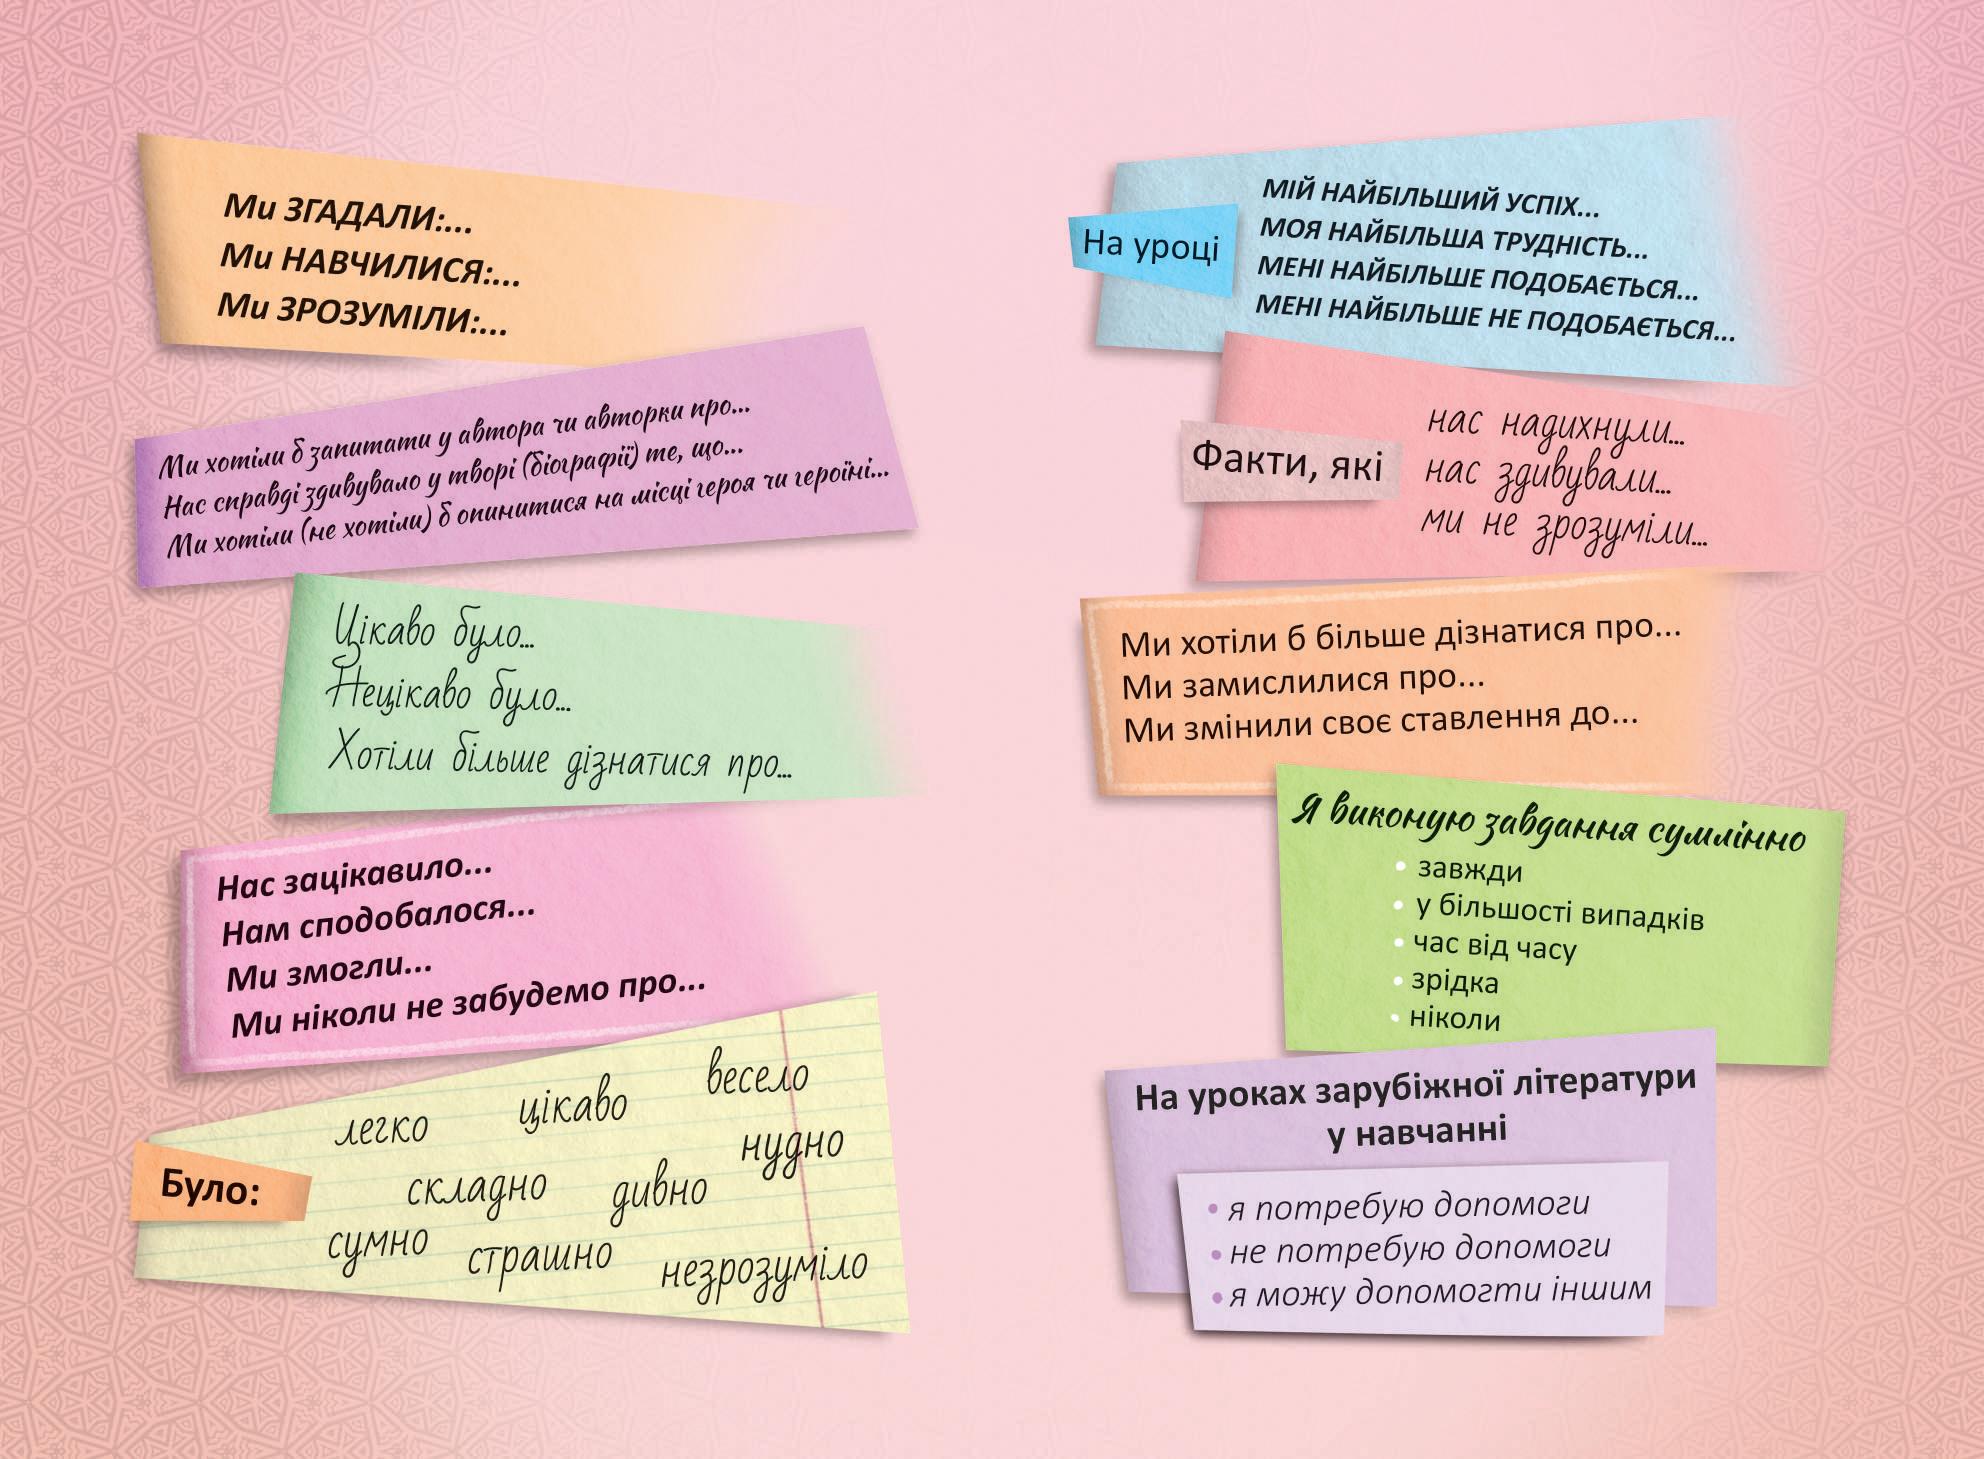 Ми ЗГАДАЛИ:...
Ми НАВЧИЛИСЯ:...
Ми ЗРОЗУМІЛИ:...
Ми хотіли б запитати у автора чи авторки про...
Нас справді здивувало у творі (біографії) те, що...
Ми хотіли (не хотіли) б опинитися на місці героя чи героїні...
Цікаво було...
Нецікаво було...
Хотіли більше дізнатися про...
Нас зацікавило...
Нам сподобалося...
Ми змогли...
Ми ніколи не забудемо про...
Було:
легко цікаво весело
складно дивно нудно
сумно страшно незрозуміло
На уроці
МІЙ НАЙБІЛЬШИЙ УСПІХ...
МОЯ НАЙБІЛЬША ТРУДНІСТЬ...
МЕНІ НАЙБІЛЬШЕ ПОДОБАЄТЬСЯ...
МЕНІ НАЙБІЛЬШЕ НЕ ПОДОБАЄТЬСЯ...
Факти, які
нас надихнули...
нас здивували...
ми не зрозуміли...
Ми хотіли б більше дізнатися про...
Ми замислилися про...
Ми змінили своє ставлення до...
Я виконую завдання сумлінно
• завжди
• у більшості випадків
• час від часу
• зрідка
• ніколи
На уроках зарубіжної літератури
у навчанні
• я потребую допомоги
• не потребую допомоги
• я можу допомогти іншим